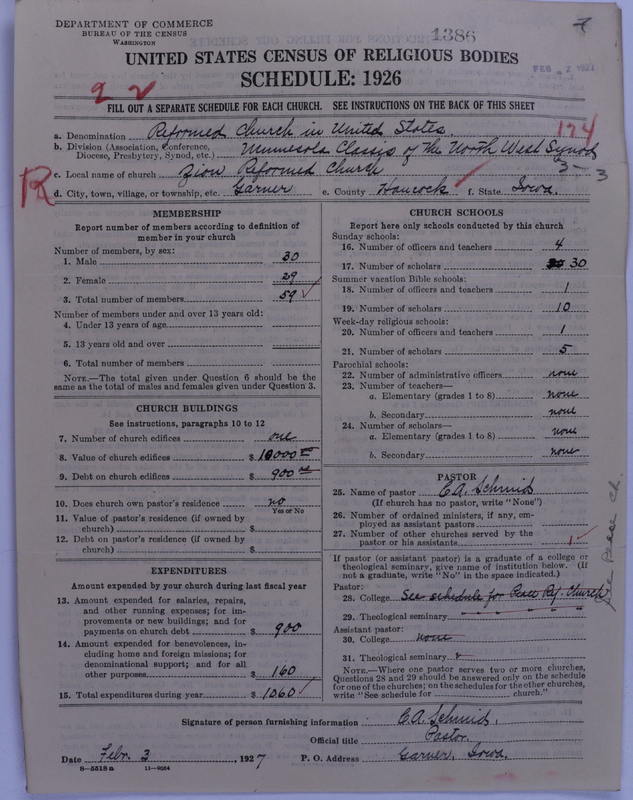 DEPARTMENT OF COMMERCE
BUREAU OF THE CENSUS
WASHINGTON
1386
7
UNITED STATES CENSUS OF RELIGIOUS BODIES
FEB 2 1927
SCHEDULE: 1926
FILL OUT A SEPARATE SCHEDULE FOR EACH CHURCH. SEE INSTRUCTIONS ON THE BACK OF THIS SHEET
a. Denomination Reformed Church in United States. 174
b. Division (Association, Conference, Diocese, Presbytery, Synod, etc.) Minnesota Classis of the North West Synod
c. Local name of church Zion Reformed Church 3-3
d. City, town, village, or township, etc. Garner e. County Hancock f. State Iowa.
R
MEMBERSHIP
Report number of members according to definition of
member in your church
Number of members, by sex:
1. Male 30
2. Female 29
3. Total number of members 59
Number of members under and over 13 years old:
4. Under 13 years of age
5. 13 years old and over
6. Total number of members
NOTE.—The total given under Question 6 should be
same as the total of males and females given under Question 3.
CHURCH BUILDINGS
See instructions, paragraphs 10 to 12
7. Number of church edifices one
8. Value of church edifices $ 10000 00
9. Debt on church edifices $ 900 00
10. Does church own pastor's residence no
Yes or No
11. Value of pastor's residence (if owned by
church) $
12. Debt on pastor's residence (if owned by
church) $
EXPENDITURES
Amount expended by your church during last fiscal year
13. Amount expended for salaries, repairs,
and other running expenses; for im-
provements or new buildings; and for
payments on church debt $ 900
14. Amount expended for benevolences, in-
cluding home and foreign missions; for
denominational support; and for all
other purposes $ 160
15. Total expenditures during year $ 1060
CHURCH SCHOOLS
Report here only schools conducted by this church
Sunday schools:
16. Number of officers and teachers 4
17. Number of scholars 30
Summer vacation Bible schools:
18. Number of officers and teachers 1
19. Number of scholars 10
Week-day religious schools:
20. Number of officers and teachers 1
21. Number of scholars 5
Parochial schools:
22. Number of administrative officers none
23. Number of teachers—
a. Elementary (grades 1 to 8) none
b. Secondary none
24. Number of scholars—
a. Elementary (grades 1 to 8) none
b. Secondary none
PASTOR
25. Name of pastor C.A. Schmid
(If church has no pastor, write "None")
26. Number of ordained ministers, if any, em-
ployed as assistant pastors
27. Number of other churches served by the
pastor or his assistants 1
If pastor (or assistant pastor) is a graduate of a college or
theological seminary, give name of institution below. (If
not a graduate, write "No" in the space indicated.)
Pastor:
28. College See schedule for Peace Ref. Church
29. Theological seminary
Assistant pastor:
30. College none
31. Theological seminary
NOTE.—Where one pastor serves two or more churches,
Questions 28 and 29 should be answered only on the schedule
for one of the churches; on the schedules for the other churches,
write "See schedule for church."
See Peace Ch.
Signature of person furnishing information C.A. Schmid.
Official title Pastor.
Date Febr. 3 1927 P. O. Address Garner, Iowa.
8—5518a 11—9054